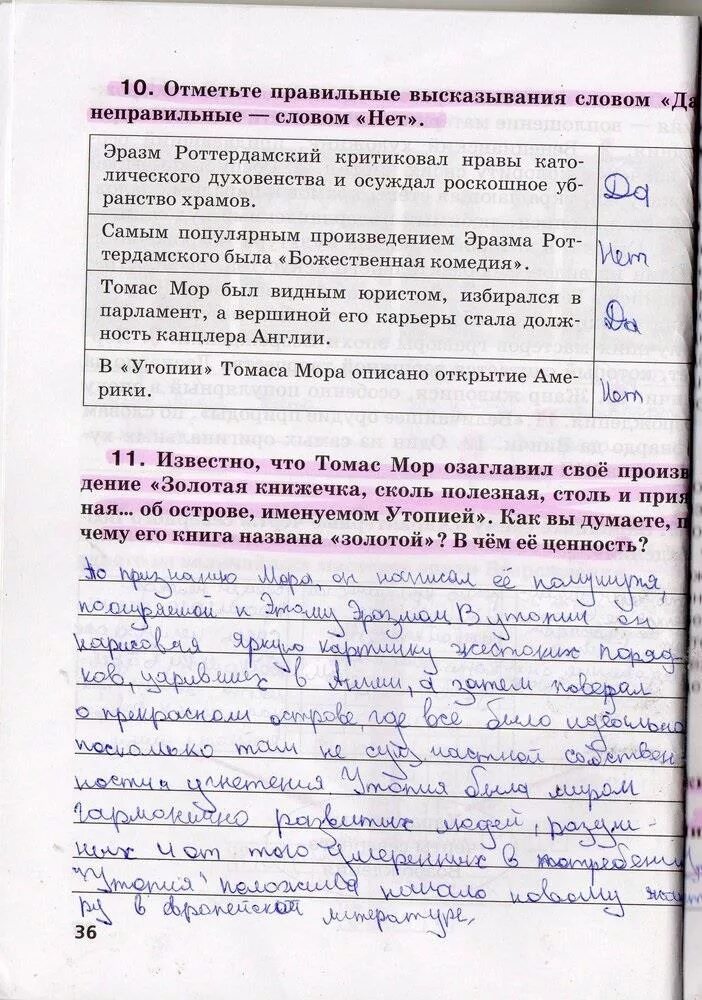 10. Отметьте правильные высказывания словом «Да
неправильные — словом «Нет».
Эразм Роттердамский критиковал нравы като-
лического духовенства и осуждал роскошное уб-
ранство храмов.
Да
Самым популярным произведением Эразма Рот-
тердамского была «Божественная комедия».
Нет
Томас Мор был видным юристом, избирался в
парламент, а вершиной его карьеры стала долж-
ность канцлера Англии.
Да
В «Утопии» Томаса Мора описано открытие Аме-
рики.
Нет
11. Известно, что Томас Мор озаглавил своё произв
дение «Золотая книжечка, сколь полезная, столь и прия
ная... об острове, именуемом Утопией». Как вы думаете, п
чему его книга названа «золотой»? В чём её ценность?
По признанию Мора, он написал её полушутя,
поощряемой к этому Эразмом. В утопии он
нарисовал яркую картинку жестоких поряд-
ков, царивших в Англии, а затем поведал
о прекрасном острове, где всё было идеально
поскольку там не сущ. частной собствен-
ности и угнетения. Утопия была миром
гармонично развитых людей, разум-
ных и от того умеренных в потреблении
"Утопия" положила начало новому жан
ру в европейской литературе.
36